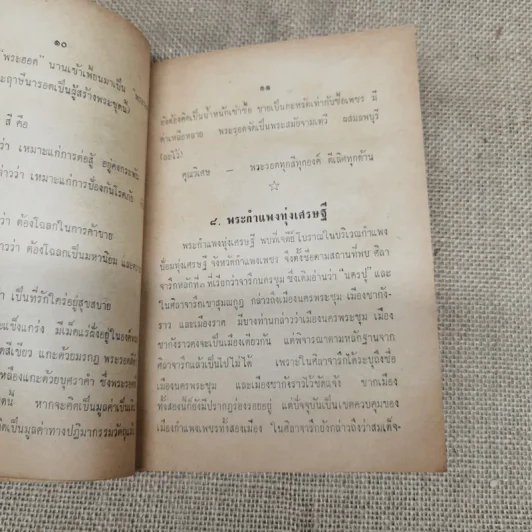 ๑๐
"พระรอด" นานเข้าเพี้ยนมาเป็น
ฤาษีนารอดเป็นผู้สร้างพระชุดนี้)
สี คือ
ว่า เหมาะแก่การต่อสู้ อยู่คงกระพัน
ว่า เหมาะแก่การป้องกันโรคภัย
ว่า ต้องโฉลกในการค้าขาย
ว่า ต้องโฉลกเป็นมหานิยม และ
ว่า เป็นที่รักใคร่อยู่สุขสบาย
แข็งแกร่ง มีเม็ดแร่ฝังอยู่ในองค์พระ
สีเขียว แกะด้วยมรกฎ พระรอด
เหลืองแกะด้วยบุศราคำ ซึ่งพระรอด
หากจะคิดเป็นมูลค่าเป็น
คิดเป็นมูลค่าทางปฏิมากรรมวัตถุ
๑๑
จึงต้องคิดเป็นน้ำหนักเข้าซื้อ ขายเป็นกะหรัดเท่ากับซื้อเพชร มี
ค่าเหลือหลาย พระรอดจัดเป็นพระสมัยจามเทวี
คุณวิเศษ — พระรอดทุกสีทุกองค์ ดีเลิศทุกด้าน
๘. พระกำแพงทุ่งเศรษฐี
พระกำแพงทุ่งเศรษฐี พบที่เจดีย์โบราณในบริเวณกำแพง
ป้อมทุ่งเศรษฐี จังหวัดกำแพงเพชร จึงตั้งชื่อตามสถานที่พบ ศิลา
จารึกหลักที่๓ ที่เรียกว่าจารึกนครชุม ซึ่งเดิมอ่านว่า "นครปุ" และ
ในศิลาจารึกเขาสุมนกูฎ กล่าวถึงเมืองนครพระชุม เมืองชากัง-
ราว และเมืองราด มีบางท่านกล่าวว่าเมืองนครพระชุม เมือง
ชากังราวคงจะเป็นเมืองเดียวกัน แต่พิจารณาตามหลักฐานจาก
ศิลาจารึกแล้วเป็นไปไม่ได้ เพราะในศิลาจารึกได้ระบุถึงชื่อ
เมืองนครพระชุม และเมืองชากังราวไว้ชัดแจ้ง ซากเมือง
ทั้งสองนี้ก็ยังมีปรากฏร่องรอยอยู่ แต่ปัจจุบันเป็นเขตควบคุมของ
เมืองกำแพงเพชรทั้งสองเมือง ในศิลาจารึกยังกล่าวถึงว่าสมเด็จ-